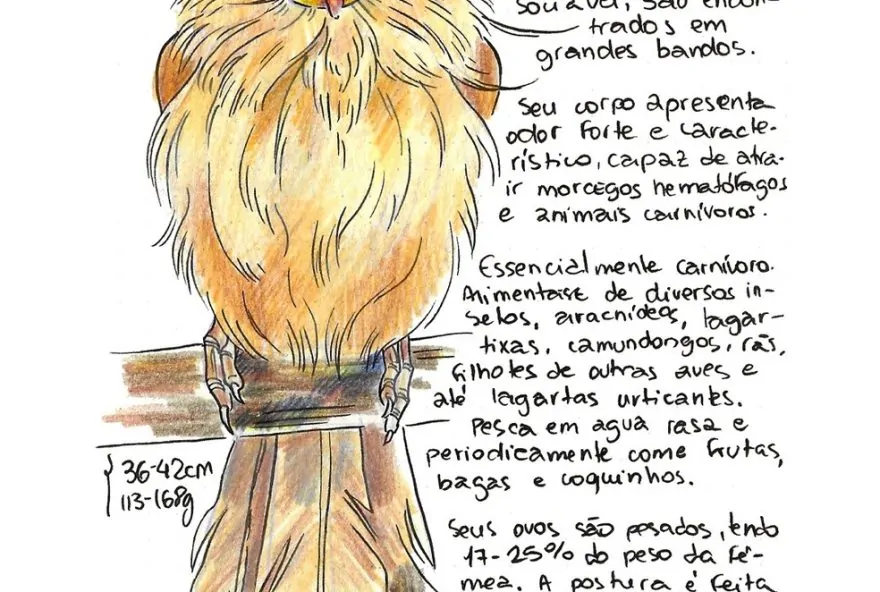 sociável, são encon-
trados em
grandes bandos.
Seu corpo apresenta
odor forte e caracte-
rístico, capaz de atra-
ir morcegos hematófagos
e animais carnívoros.
Essencialmente carnívoro.
Alimentase de diversos in-
setos, aracnídeos, lagar-
tixas, camundongos, rãs,
filhotes de outras aves e
até lagartas urticantes.
Pesca em agua rasa e
periodicamente come frutas,
bagas e coquinhos.
36-42cm
113-168g
Seus ovos são pesados, tendo
17-25% do peso da fê-
mea. A postura é feita